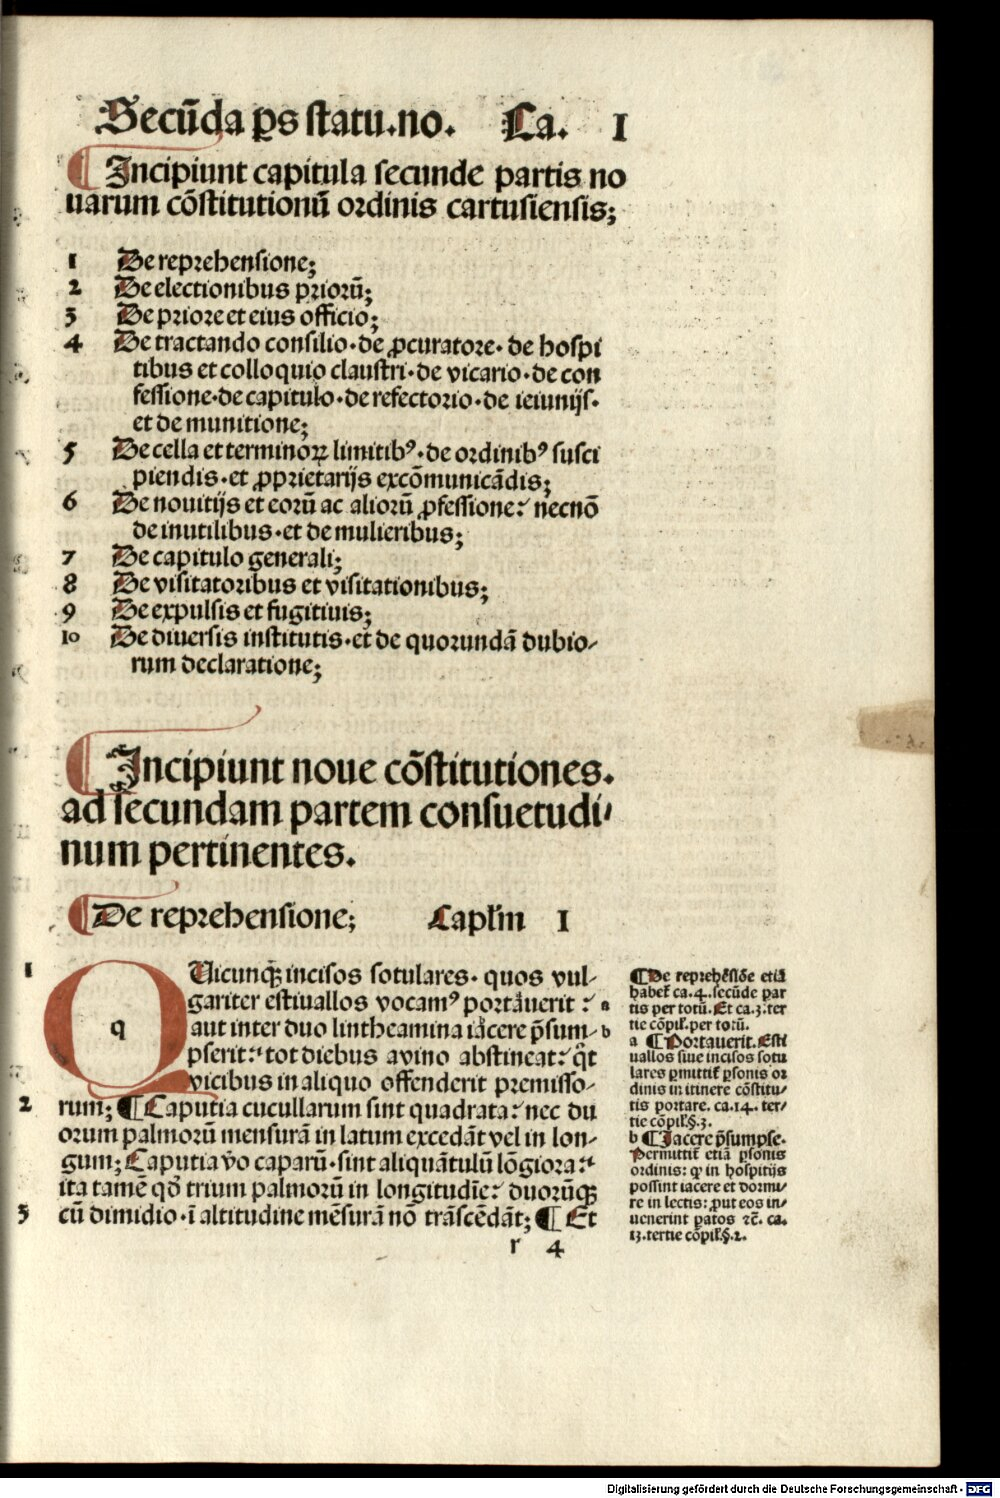 Secūda ꝑs statu.no. Ca. I
¶ Incipiunt capitula secunde partis no
uarum cōstitutionū ordinis cartusiensis;
1 De reprehensione;
2 De electionibus priorū;
3 De priore et eius officio;
4 De tractando consilio·de ꝓcuratore·de hospi
tibus et colloquio claustri·de vicario·de con
fessione·de capitulo·de refectorio·de ieiunijs·
et de munitione;
5 De cella et terminoꝝ limitibꝰ·de ordinibꝰ susci
piendis·et ꝓprietarijs excōmunicādis;
6 De nouitijs et eorū ac aliorū ꝓfessione: necnō
de inutilibus·et de mulieribus;
7 De capitulo generali;
8 De visitatoribus et visitationibus;
9 De expulsis et fugitiuis;
10 De diuersis institutis·et de quorundā dubio-
rum declaratione;
¶ Incipiunt noue cōstitutiones.
ad secundam partem consuetudi/
num pertinentes.
¶ De reprehensione; Capl'm I
1 QUicunqꝫ incisos sotulares· quos vul-
q
gariter estiuallos vocamꝰ portauerit: a
aut inter duo lintheamina iacere p̄sum- b
pserit: tot diebus a vino abstineat: q̄t
vicibus in aliquo offenderit premisso-
2 rum; ¶ Caputia cucullarum sint quadrata: nec du
orum palmorū mensurā in latum excedāt vel in lon-
gum; Caputia v̄o caparū·sint aliquātulū lōgiora:
ita tamē qđ trium palmorū in longitudīe: duorūqꝫ
3 cū dimidio·ī altitudine mēsurā nō trāscēdāt; ¶ Et
r 4
¶ De reprehēsiōe etiā
habet̄ ca.4.secūde par
tis per totū. Et ca.3.ter
tie cōpil̄.per totū.
a ¶ Portauerit. Esti
uallos siue incisos sotu
lares ꝑmittit̄ ꝑsonis or
dinis in itinere cōstitu-
tis portare. ca.14. ter-
tie cōpil̄.§.3.
b ¶ Iacere p̄sumpse.
Permittit̄ etiā ꝑsonis
ordinis: ꝙ in hospitijs
possint iacere et dormi-
re in lectis: ꝓut eos in-
uenerint ꝑatos ⁊c̄. ca.
13.tertie cōpil̄.§.2.
Digitalisierung gefördert durch die Deutsche Forschungsgemeinschaft - DFG